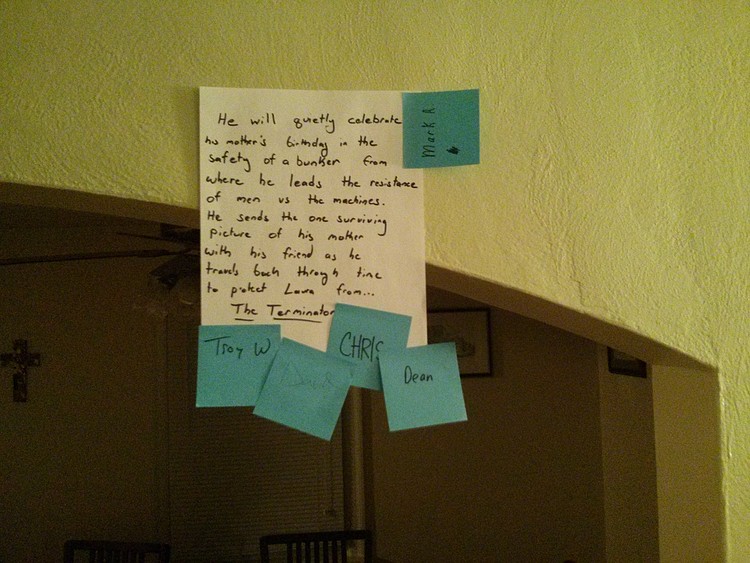 He will quietly celebrate
his mother's birthday in the
safety of a bunker from
where he leads the resistance
of men vs the machines.
He sends the one surviving
picture of his mother
with his friend as he
travels back through time
to protect Laura from...
The Terminator
Mark R
Troy W
CHRIS
Dean